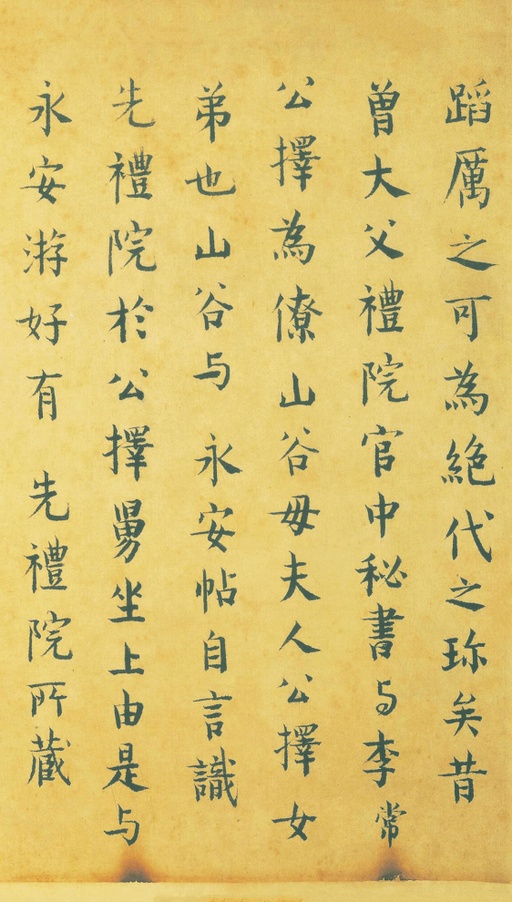 蹈厲之可為絕代之珎矣昔
曾大父禮院官中秘書与李常
公擇為僚山谷毋夫人公擇女
弟也山谷与 永安帖自言識
先禮院於公擇舅坐上由是与
永安游好有 先禮院所藏